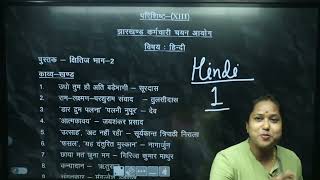 परिशिष्ट-(XIII)
झारखण्ड कर्मचारी चयन आयोग
विषय : हिन्दी
पुस्तक – क्षितिज भाग-2
काव्य-खण्ड
1. उधो तुम हौ अति बड़भागी – सूरदास
2. राम-लक्ष्मण-परशुराम संवाद – तुलसीदास
3. 'डार द्रुम पलना' 'पायनी नुपूर' – देव
4. 'आत्मकथ्य' – जयशंकर प्रसाद
5. 'उत्साह', 'अट नहीं रही' – सूर्यकान्त त्रिपाठी निराला
6. 'फसल', 'यह दंतुरित मुस्कान' – नागार्जुन
7. छाया मत छूना मन – गिरिजा कुमार माथुर
8. कन्यादान –
Hindi
1